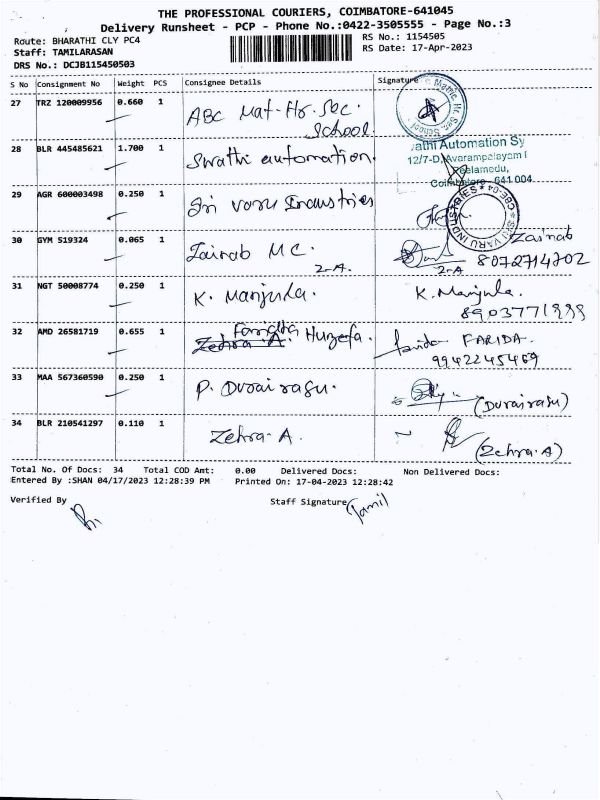 THE PROFESSIONAL COURIERS, COIMBATORE-641045
Delivery Runsheet - PCP - Phone No.:0422-3505555 - Page No.:3
Route: BHARATHI CLY PC4 RS No.: 1154505
Staff: TAMILARASAN RS Date: 17-Apr-2023
DRS No.: DCJB115450503
S No Consignment No Weight PCS Consignee Details Signature
27 TRZ 120009956 0.660 1 ABC Mat-Hr.Sec. School
28 BLR 445485621 1.700 1 Swathi automation. athi Automation Sy
12/7-D, Avarampalayam
Peelamedu,
Coimbatore - 641 004
29 AGR 600003498 0.250 1 Sri varu Industries SRI VARU INDUSTRIES ★ CBE-04 ★
30 GYM 519324 0.065 1 Zainab M C. 2nA. Zainab
2nA 8072714202
31 NGT 50008774 0.250 1 K. Manjula. K. Manjula.
32 AMD 26581719 0.655 1 Huzefa. FARIDA.
9942245469
33 MAA 567360590 0.250 1 P. Durairasu. (Durairasu)
34 BLR 210541297 0.110 1 Zehra. A. (Zehra. A)
Total No. Of Docs: 34 Total COD Amt: 0.00 Delivered Docs: Non Delivered Docs:
Entered By :SHAN 04/17/2023 12:28:39 PM Printed On: 17-04-2023 12:28:42
Verified By Staff Signature Tamil